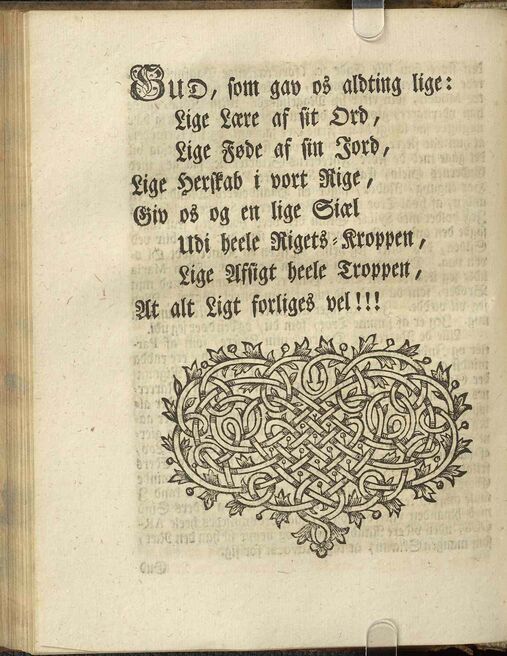 GUD, som gav os aldting lige:
Lige Lære af sit Ord,
Lige Føde af sin Jord,
Lige Herskab i vort Rige,
Giv os og en lige Siæl
Udi heele Rigets-Kroppen,
Lige Afsigt heele Troppen,
At alt Ligt forliges vel!!!